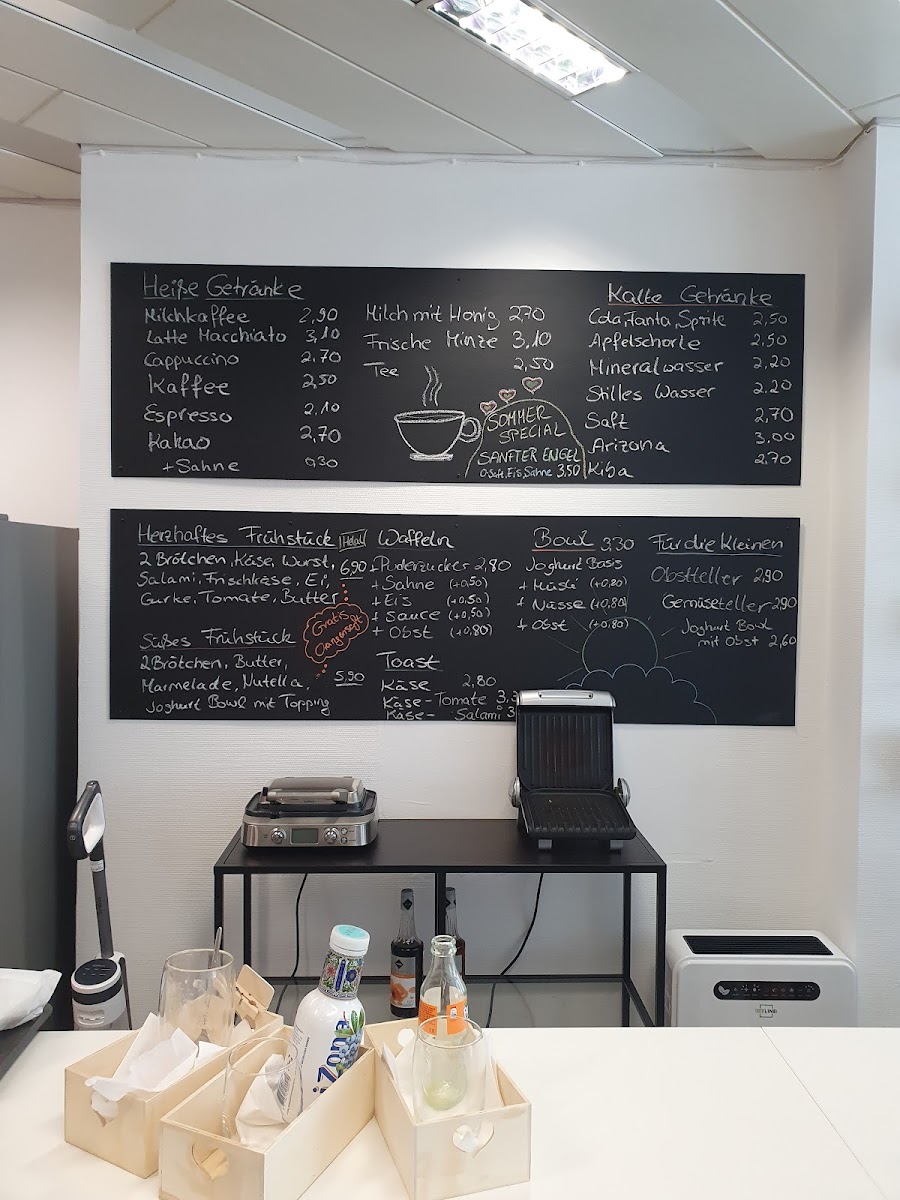 Heiße Getränke
Milchkaffee 2,90
Latte Macchiato 3,10
Cappuccino 2,70
Kaffee 2,50
Espresso 2,10
Kakao 2,70
+ Sahne 0,30
Milch mit Honig 2,70
Frische Minze 3,10
Tee 2,50
SOMMER
SPECIAL
SANFTER ENGEL
O-Saft, Eis, Sahne 3,50
Kalte Getränke
Cola, Fanta, Sprite 2,50
Apfelschorle 2,50
Mineralwasser 2,20
Stilles Wasser 2,20
Saft 2,70
Arizona 3,00
KiBa 2,70
Herzhaftes Frühstück
2 Brötchen, Käse, Wurst, 6,90
Salami, Frischkäse, Ei,
Gurke, Tomate, Butter
Gratis
Orangensaft
Süßes Frühstück
2 Brötchen, Butter,
Marmelade, Nutella, 5,90
Joghurt Bowl mit Topping
Waffeln
Puderzucker 2,80
+ Sahne (+0,50)
+ Eis (+0,50)
+ Sauce (+0,50)
+ Obst (+0,80)
Toast
Käse 2,80
Käse-Tomate 3,3
Käse- Salami 3
Bowl 3,30
Joghurt Basis
+ Müsli (+0,80)
+ Nüsse (+0,80)
+ Obst (+0,80)
Für die Kleinen
Obstteller 2,90
Gemüseteller 2,90
Joghurt Bowl
mit Obst 2,60
iZona